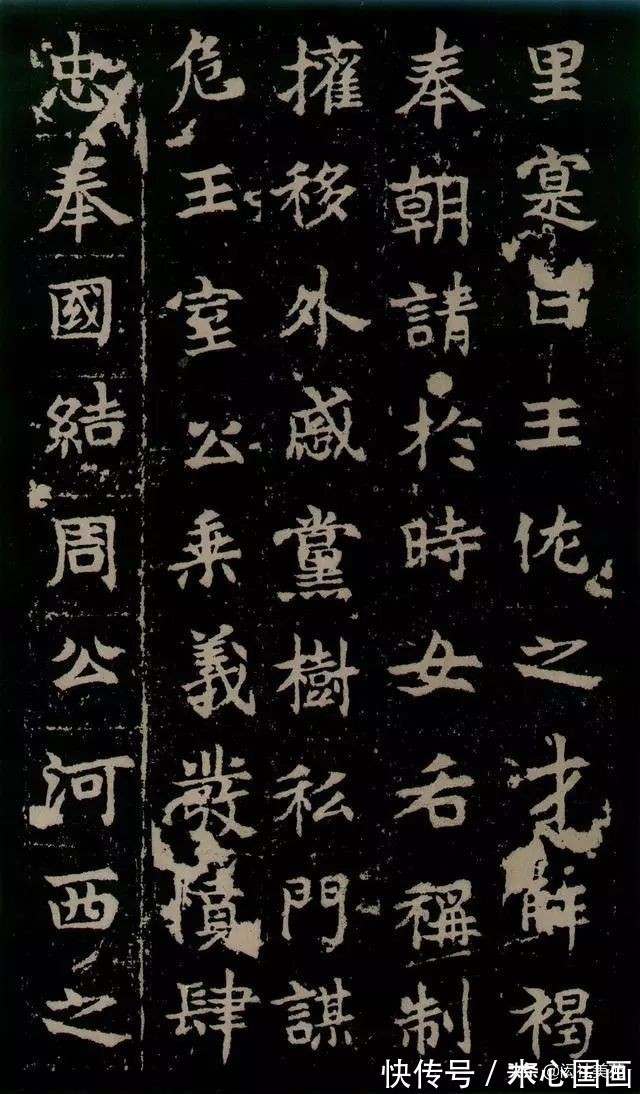 里寔曰王佐之才解褐
奉朝請於時女后稱制
擁移外戚黨樹私門謀
危王室公乘義發憤肆
忠奉國結周公河西之
快传号 / 木心国画